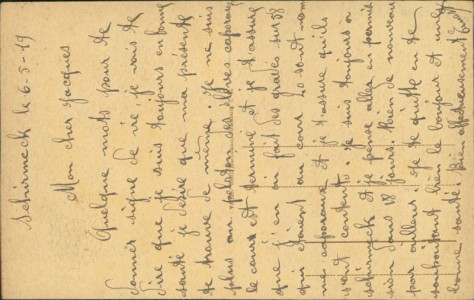 Schirmeck le 6-5-19
Mon cher Jacques
Quelque mots pour te
donner signe de vie, je vais te
dire que je suis toujours en bonne
santé je désire que ma présente
te trouve de même. Je ne suis
plus au peloton des élèves caporaux
le cours est terminé et je t'assure
que j'en ai fait des graves sur 58
qui étaient au cour 20 sont nom
mé caporaux et je t'assure qu'ils
sont contant. Je suis toujours a
schirmeck et je pense aller en permis
sion dans 18 jours. Rien de nouveau
par ailleur. Je te quitte en te
souhaitant bien le bonjour et une
bonne santé. Bien affectueusement